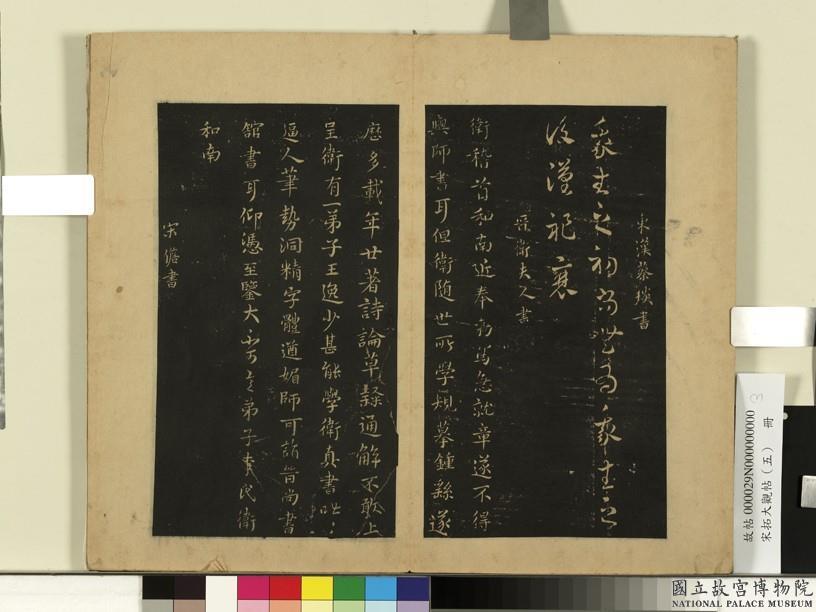 東漢蔡琰書
我生之初尚無為我生之
後漢祚衰
晉衛夫人書
衛稽首和南近奉勑寫急就章遂不得
與師書耳但衛隨世所學規摹鍾繇遂
歷多載年廿著詩論草隸通解不敢上
呈衛有一弟子王逸少甚能學衛真書咄咄
逼人筆勢洞精字體遒媚師可詣晉尚書
館書耳仰憑至鑒大不可言弟子李氏衛
和南
宋儋書
故帖 000029N000000000
宋拓大觀帖（五） 冊
3
國立故宮博物院
NATIONAL PALACE MUSEUM